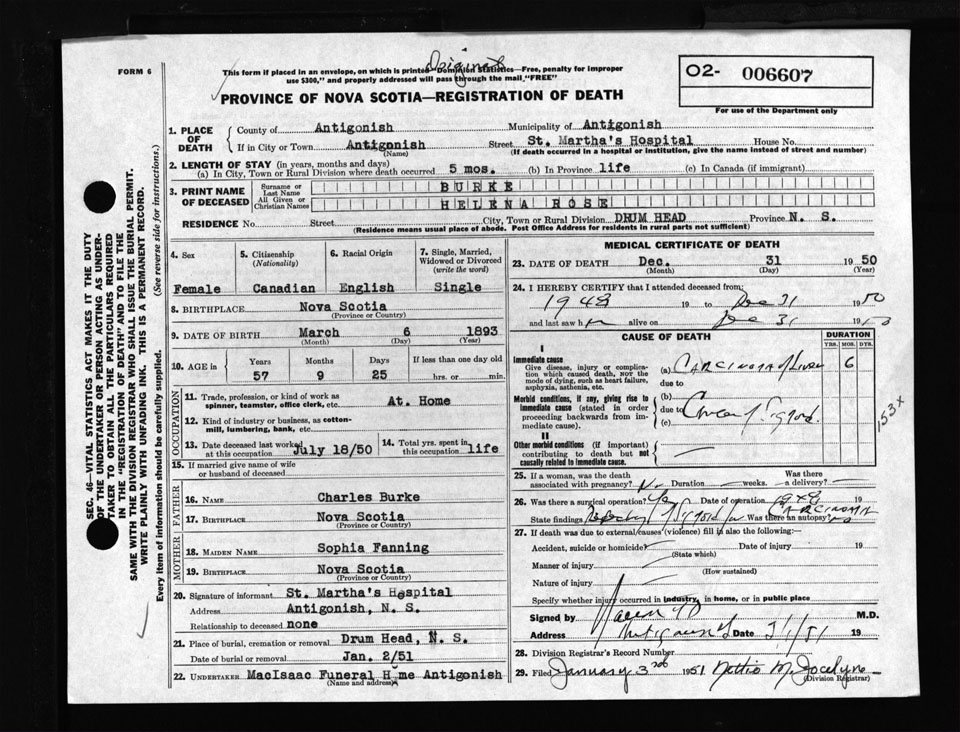 FORM 6
Original
This form if placed in an envelope, on which is printed "Dominion Statistics—Free, penalty for improper
use $300," and properly addressed will pass through the mail "FREE"
02- 006607
For use of the Department only
PROVINCE OF NOVA SCOTIA—REGISTRATION OF DEATH
1. PLACE OF DEATH { County of Antigonish Municipality of Antigonish
If in City or Town Antigonish Street St. Martha's Hospital House No.
(Name) (If death occurred in a hospital or institution, give the name instead of street and number)
2. LENGTH OF STAY (in years, months and days)
(a) In City, Town or Rural Division where death occurred 5 mos. (b) In Province life (c) In Canada (if immigrant)
3. PRINT NAME OF DECEASED { Surname or Last Name BURKE
All Given or Christian Names HELENA ROSE
RESIDENCE No. Street City, Town or Rural Division DRUM HEAD Province N. S.
(Residence means usual place of abode. Post Office Address for residents in rural parts not sufficient)
4. Sex Female
5. Citizenship (Nationality) Canadian
6. Racial Origin English
7. Single, Married, Widowed or Divorced (write the word) Single
8. BIRTHPLACE Nova Scotia
(Province or Country)
9. DATE OF BIRTH March 6 1893
(Month) (Day) (Year)
10. AGE in Years 57 Months 9 Days 25 If less than one day old hrs. or min.
OCCUPATION
11. Trade, profession, or kind of work as spinner, teamster, office clerk, etc. At. Home
12. Kind of industry or business, as cotton-mill, lumbering, bank, etc.
13. Date deceased last worked at this occupation July 18/50
14. Total yrs. spent in this occupation life
15. If married give name of wife or husband of deceased
FATHER
16. NAME Charles Burke
17. BIRTHPLACE Nova Scotia
(Province or Country)
MOTHER
18. MAIDEN NAME Sophia Fanning
19. BIRTHPLACE Nova Scotia
(Province or Country)
20. Signature of informant St. Martha's Hospital
Address Antigonish, N. S.
Relationship to deceased none
21. Place of burial, cremation or removal Drum Head, N. S.
Date of burial or removal Jan. 2/51
22. UNDERTAKER MacIsaac Funeral Home Antigonish
(Name and address)
MEDICAL CERTIFICATE OF DEATH
23. DATE OF DEATH Dec. 31 1950
(Month) (Day) (Year)
24. I HEREBY CERTIFY that I attended deceased from:
1948 19 to Dec 31 1950
and last saw h alive on Dec 31 1950
CAUSE OF DEATH
DURATION
YRS. MOS. DYS.
I
Immediate cause
Give disease, injury or complication which caused death, NOT the mode of dying, such as heart failure, asphyxia, asthenia, etc.
(a) CARCINOMA of Liver 6
due to
Morbid conditions, if any, giving rise to immediate cause (stated in order proceeding backwards from immediate cause).
(b)
due to
(c)
153 x
II
Other morbid conditions (if important) contributing to death but not causally related to immediate cause.
25. If a woman, was the death associated with pregnancy? No Duration weeks. Was there a delivery?
26. Was there a surgical operation? Yes Date of operation 1948 19
State findings CARCINOMA
Was there an autopsy? no
27. If death was due to external causes (violence) fill in also the following:—
Accident, suicide or homicide? Date of injury 19
(State which)
Manner of injury
(How sustained)
Nature of injury
Specify whether injury occurred in industry, in home, or in public place
Signed by M.D.
Address Antigonish Date 3/1/51 19
28. Division Registrar's Record Number
29. Filed January 3rd 1951 Nettie M. Jocelyne
(Division Registrar)
SEC. 46—VITAL STATISTICS ACT MAKES IT THE DUTY
OF THE UNDERTAKER OR PERSON ACTING AS UNDER-
TAKER TO OBTAIN ALL THE PARTICULARS REQUIRED
IN THE "REGISTRATION OF DEATH" AND TO FILE THE
SAME WITH THE DIVISION REGISTRAR WHO SHALL ISSUE THE BURIAL PERMIT.
WRITE PLAINLY WITH UNFADING INK. THIS IS A PERMANENT RECORD.
Every item of information should be carefully supplied. (See reverse side for instructions.)